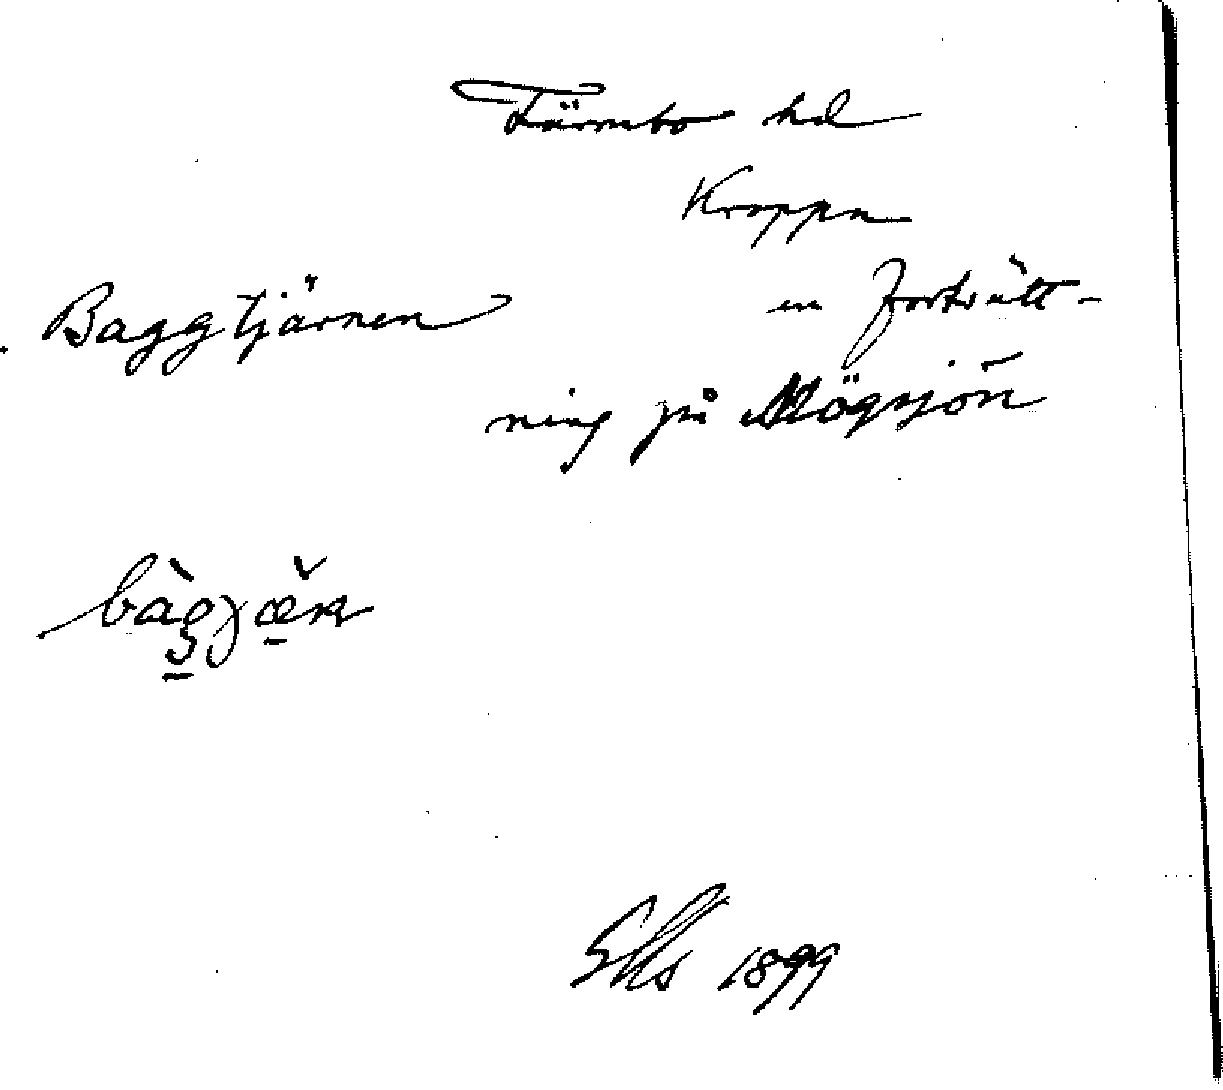 Färnebo hd
Kroppa
Baggtjärnen
en fortsätt-
ning på Mögsjön
bàgjæ̌ɳ
1899